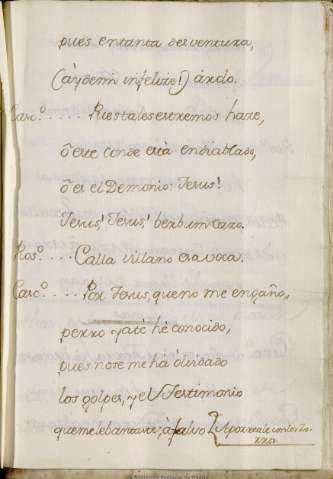 pues entanta desventura,
(ay de mi infelize!) árdo.
Casc.º .... Pues tales estremos haze,
ó este Conde está endiablado,
ó es el Demonio: Jesus!
Jesus! Jesus! berbum Caro.
Ros.º .... Calla villano esa voca.
Casc.º .... Por Jesus, que no me engaño,
perro ya té hé conocido,
pues no se me há ólvidado
los golpes, y el Testimonio
que me lebantaste, á falso
Aporreale con los Zo-